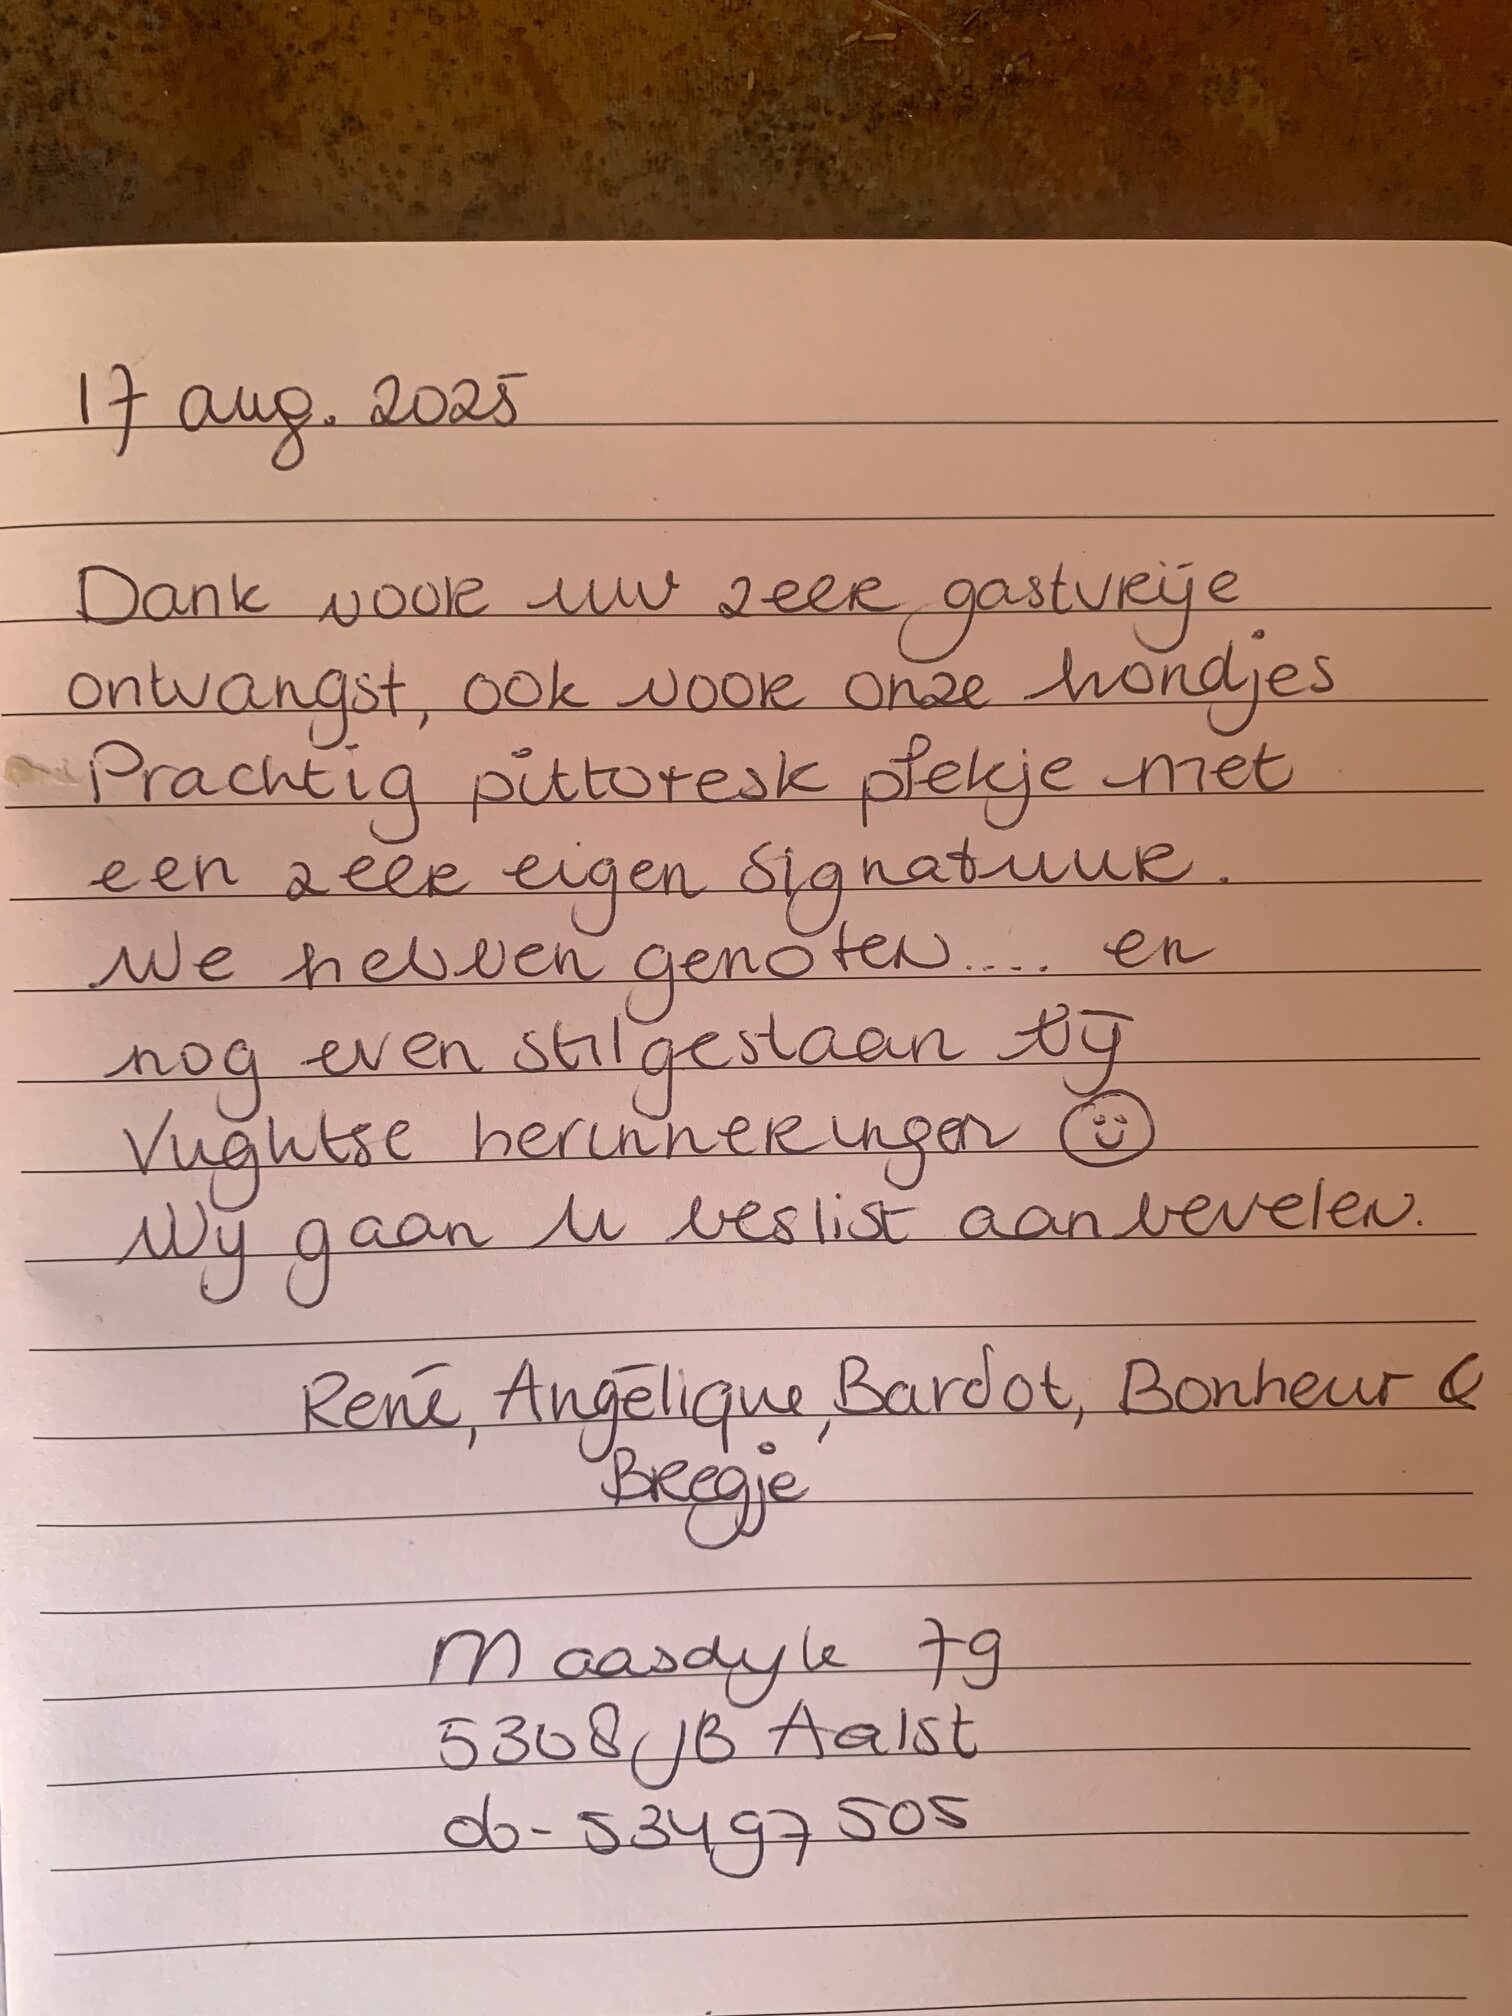 17 aug. 2025
Dank voor uw zeer gastvrije
ontvangst, ook voor onze hondjes
Prachtig pittoresk plekje met
een zeer eigen signatuur.
We hebben genoten.... en
nog even stilgestaan bij
Vughtse herinneringen ☺
Wij gaan u beslist aanbevelen.
René, Angélique, Bardot, Bonheur &
Bregje
Maasdijk 79
5308 JB Aalst
06-53497505